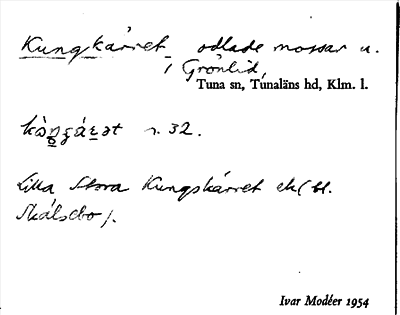 Kungskärret, odlade mossar u.
i Grönlid,
Tuna sn, Tunaläns hd, Klm. l.
r. 32.
Lilla Stora Kungskärret ek( bl.
Skälsbo).
Ivar Modéer 1954